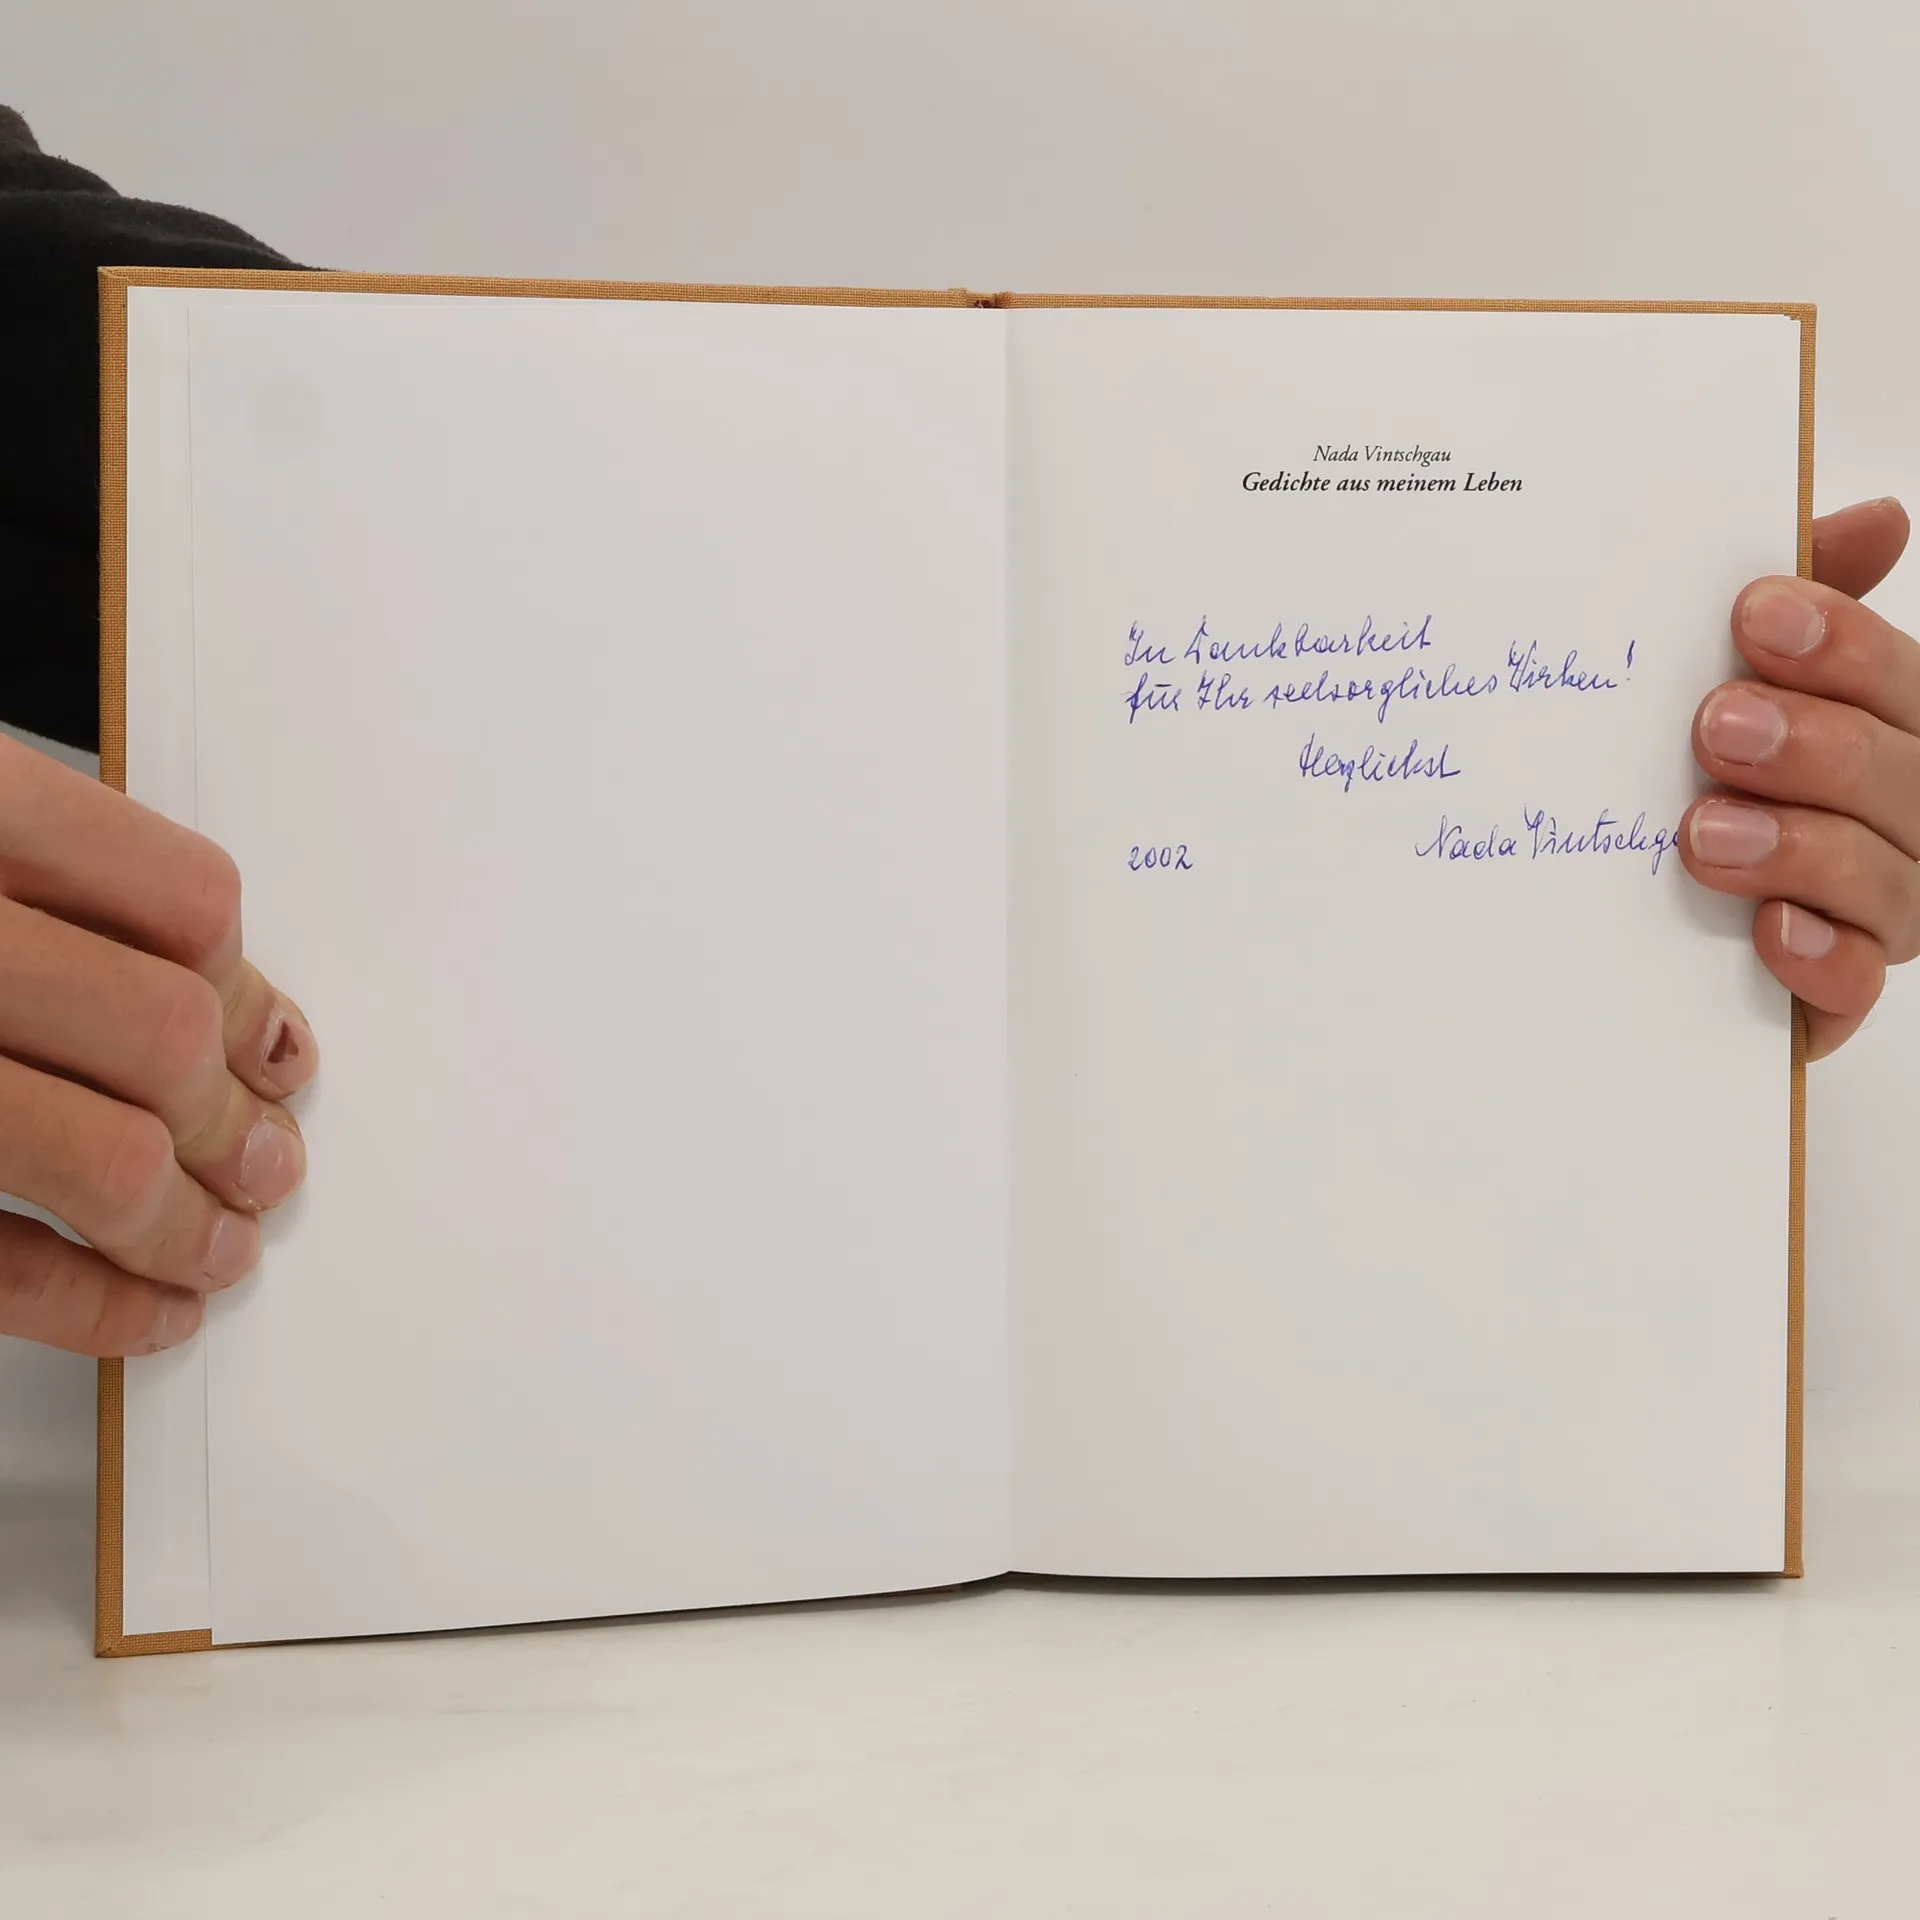 Nada Vintschgau
Gedichte aus meinem Leben
In Dankbarkeit
für Ihr seelsorgliches Wirken!
Herzlichst
2002 Nada Vintschga